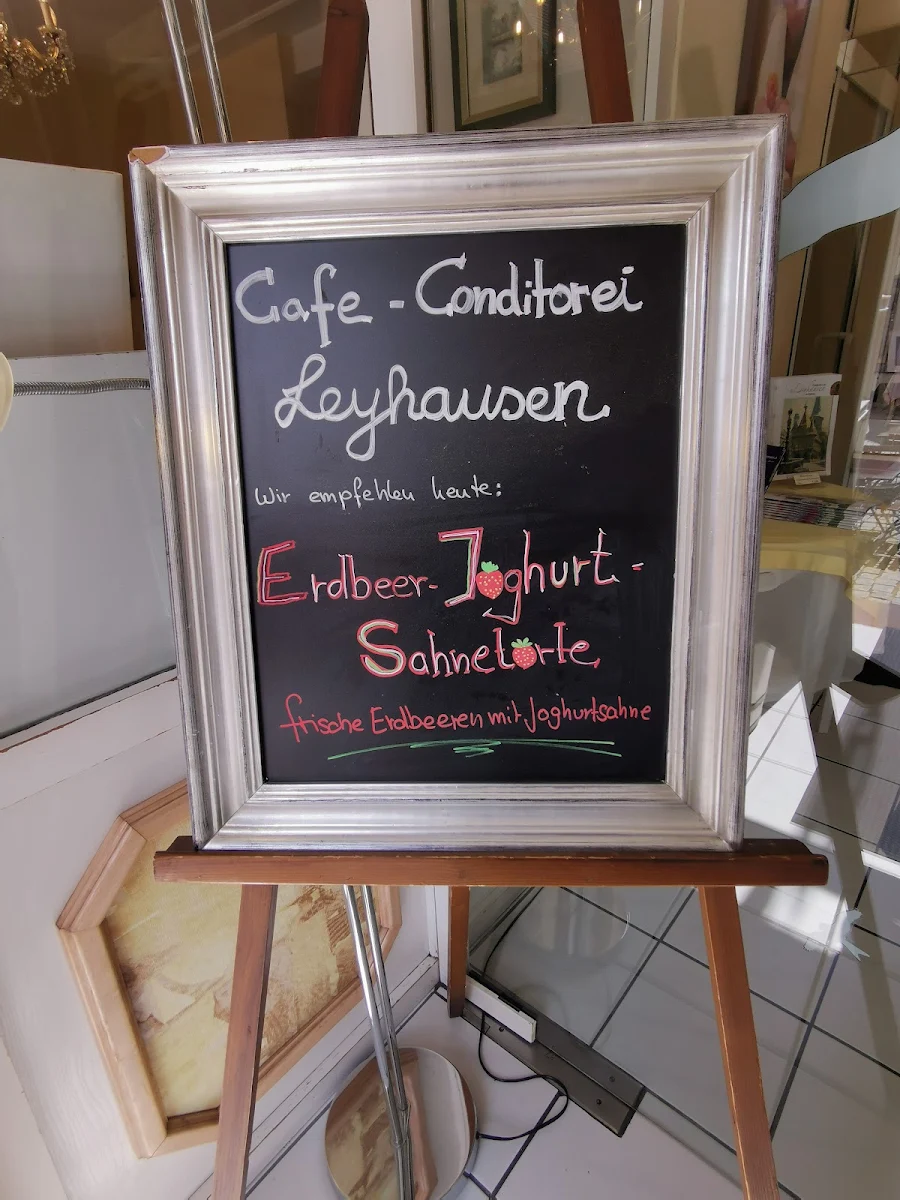 Cafe - Conditorei
Leyhausen
Wir empfehlen heute:
Erdbeer-Joghurt-
Sahnetorte
frische Erdbeeren mit Joghurtsahne